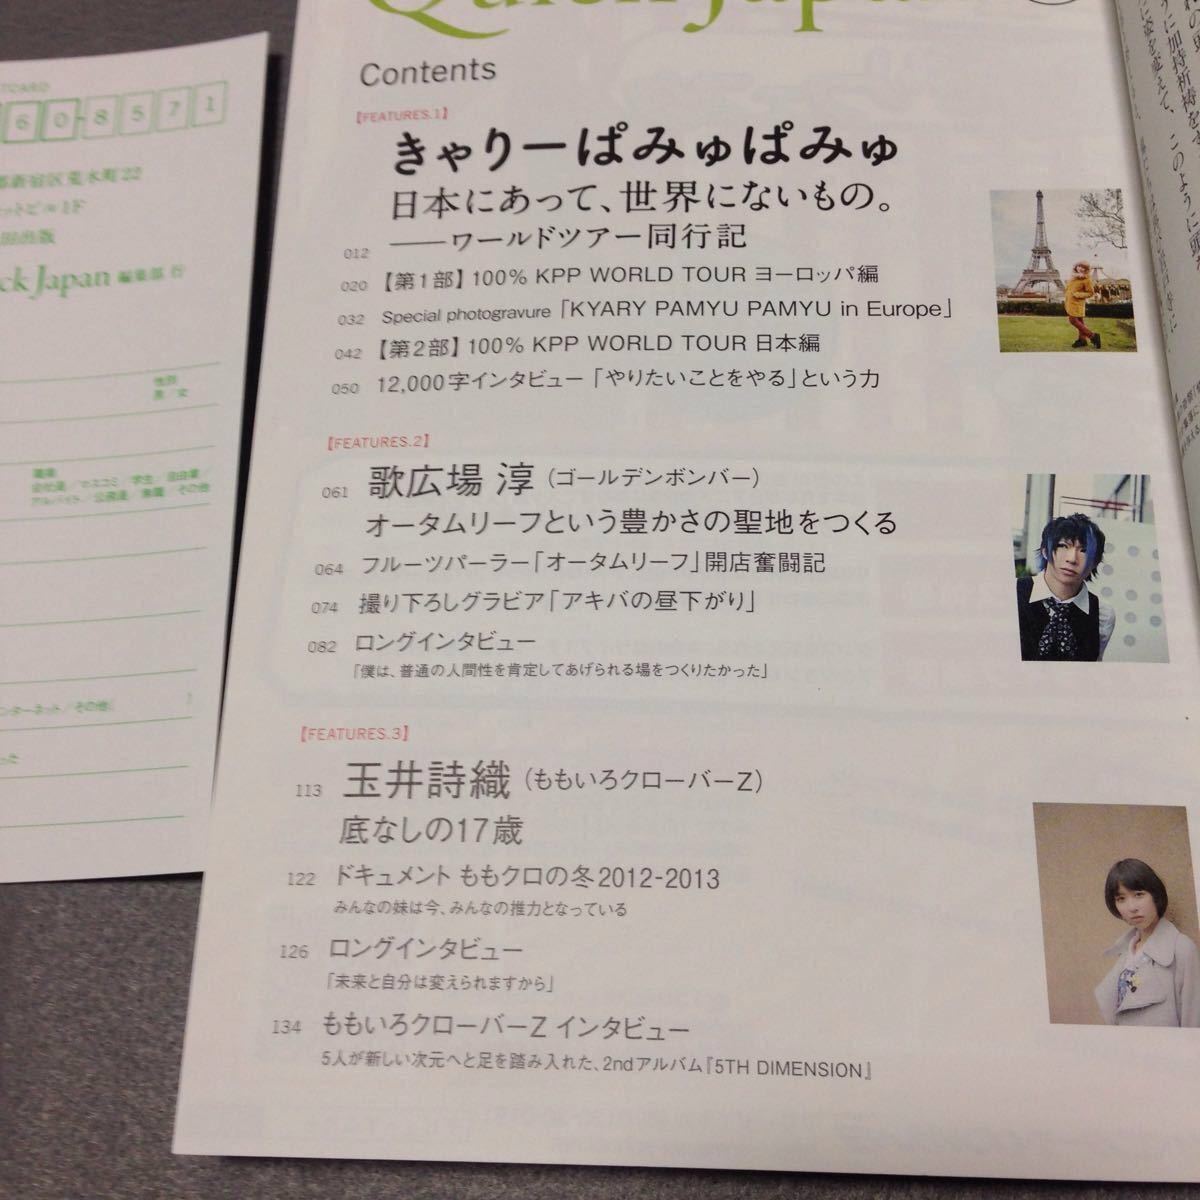 Quick Japan
Contents
【FEATURES.1】
きゃりーぱみゅぱみゅ
日本にあって、世界にないもの。
012 ――ワールドツアー同行記
020 【第1部】100% KPP WORLD TOUR ヨーロッパ編
032 Special photogravure「KYARY PAMYU PAMYU in Europe」
042 【第2部】100% KPP WORLD TOUR 日本編
050 12,000字インタビュー「やりたいことをやる」という力
【FEATURES.2】
061 歌広場 淳（ゴールデンボンバー）
オータムリーフという豊かさの聖地をつくる
064 フルーツパーラー「オータムリーフ」開店奮闘記
074 撮り下ろしグラビア「アキバの昼下がり」
082 ロングインタビュー
「僕は、普通の人間性を肯定してあげられる場をつくりたかった」
【FEATURES.3】
113 玉井詩織（ももいろクローバーZ）
底なしの17歳
122 ドキュメント ももクロの冬2012-2013
みんなの妹は今、みんなの推力となっている
126 ロングインタビュー
「未来と自分は変えられますから」
134 ももいろクローバーZ インタビュー
5人が新しい次元へと足を踏み入れた、2ndアルバム『5TH DIMENSION』
TCARD
60-8571
都新宿区荒木町22
ットビル1F
田出版
ck Japan 編集部 行
性別
男／女
職業
会社員／マスコミ／学生／自由業／
アルバイト／公務員／無職／その他
ンターネット／その他
った
に加持祈祷を
に姿を変えて、このように